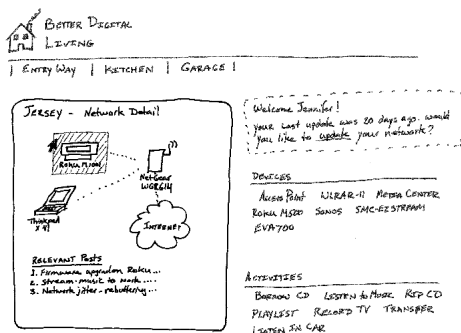 BETTER DIGITAL
LIVING
| ENTRY WAY | KITCHEN | GARAGE |
JERSEY - Network Detail
Roku M1001
NetGear
WGR614
Thinkpad
X41
INTERNET
RELEVANT POSTS
1. Firmware upgrade on Roku...
2. Stream-music to work....
3. Network jitter-rebuffering...
Welcome Jennifer!
your last update was 20 days ago. would
you like to update your network?
DEVICES
Access Point WIRAR-11 MEDIA CENTER
Roku M500 SONOS SMC-EZSTREAM
EVA700
ACTIVITIES
BORROW CD LISTEN to MUSIC RIP CD
PLAYLIST RECORD TV TRANSFER
LISTEN IN CAR